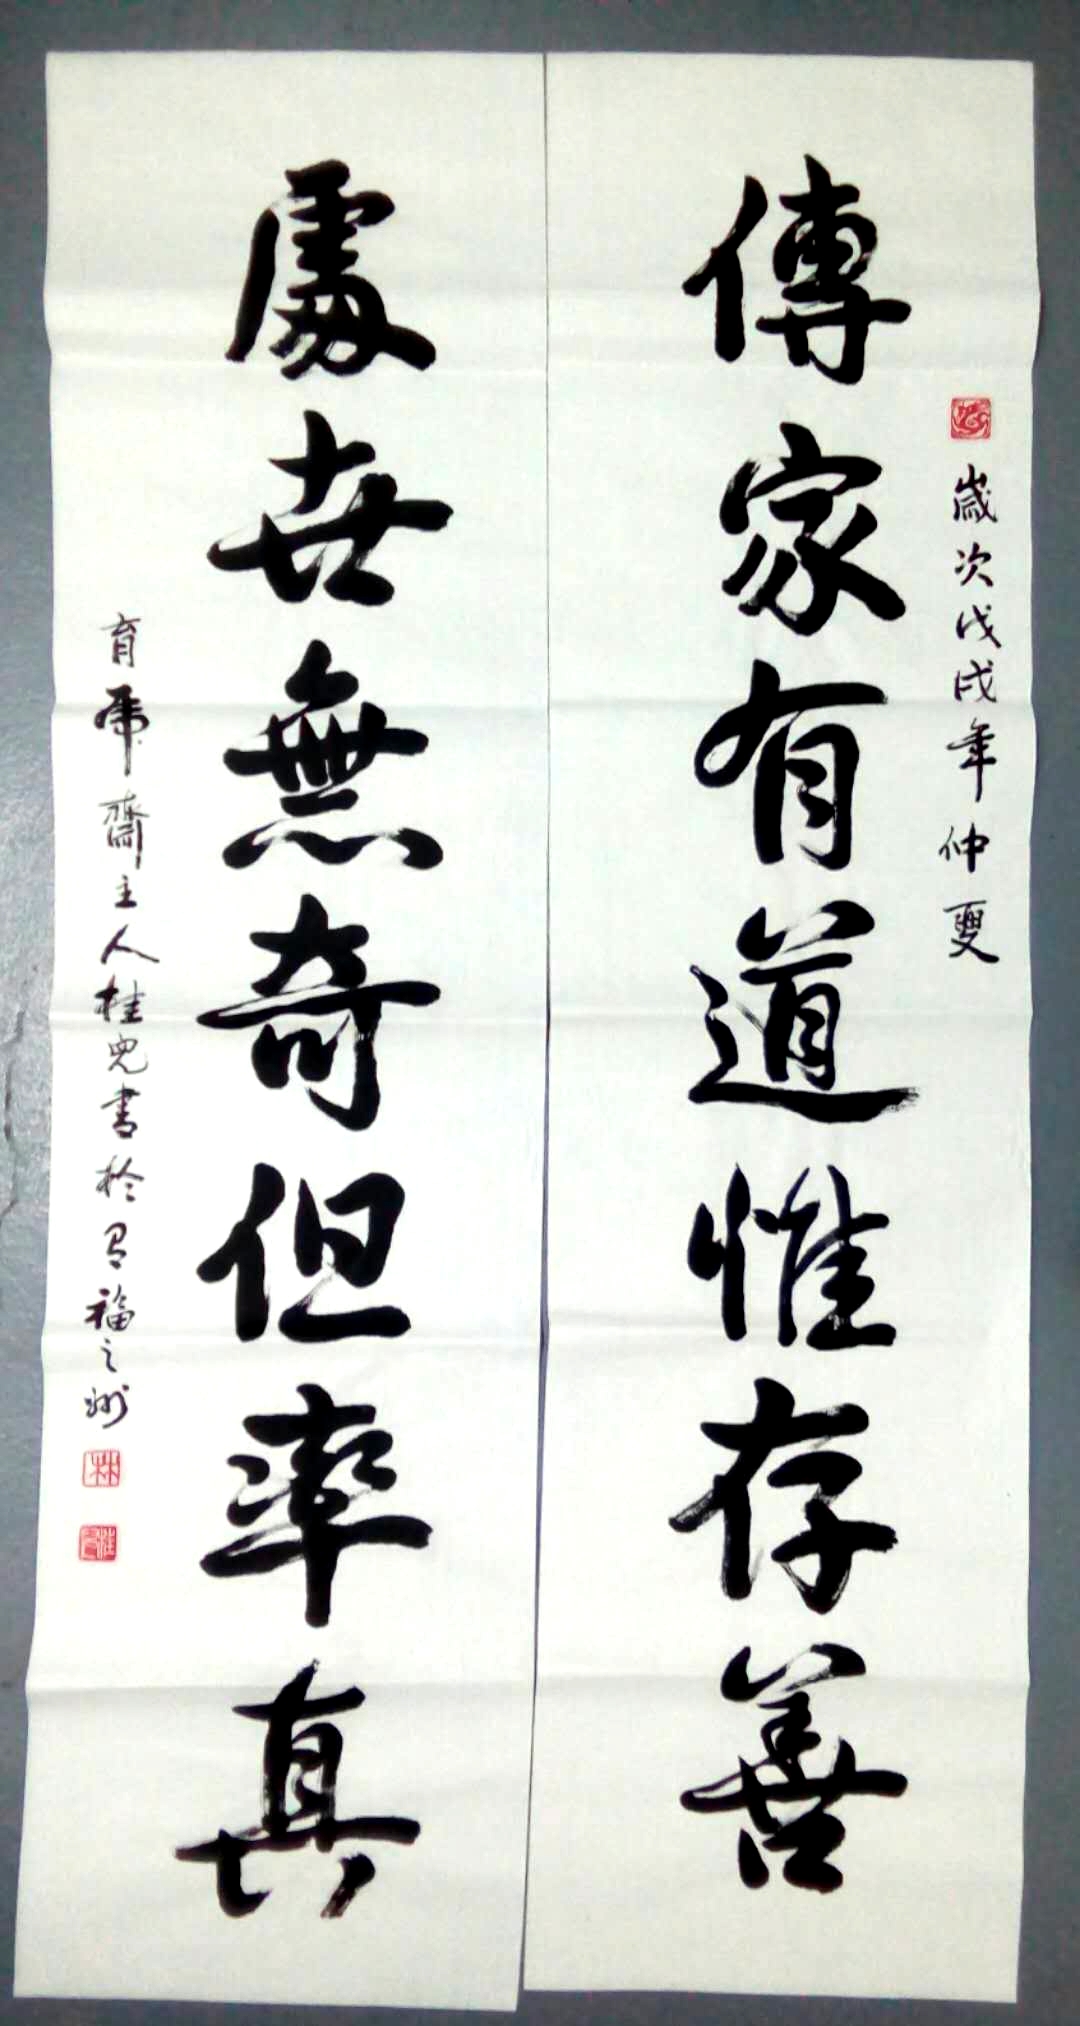 傳家有道惟存善
歲次戊戌年仲夏
處世無奇但率真
育庸齋主人桂兒書於有福之州